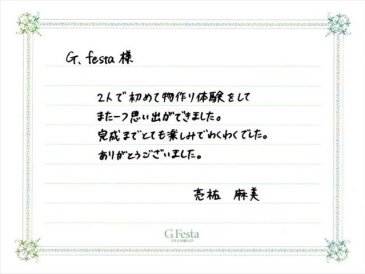 G. festa 様
2人で初めて物作り体験をして
また一つ思い出ができました。
完成までとても楽しみでわくわくでした。
ありがとうございました。
亮祐 麻美
G.Festa